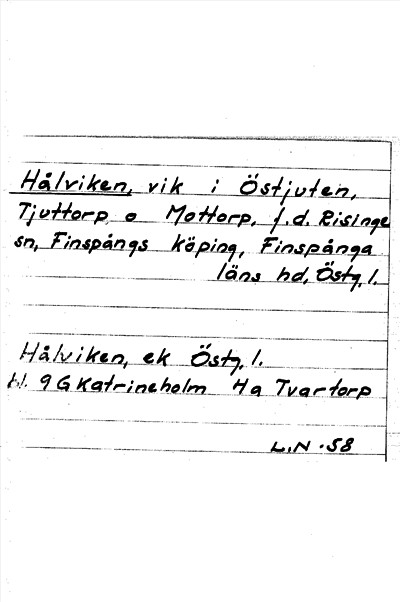 Hålviken, vik i Östjuten,
Tjuttorp o Mottorp, f.d. Risinge
sn, Finspångs köping, Finspånga
läns hd, Östg. l.
Hålviken, ek Östg. l.
bl. 9G Katrineholm 4a Tvartorp
L.N. 58